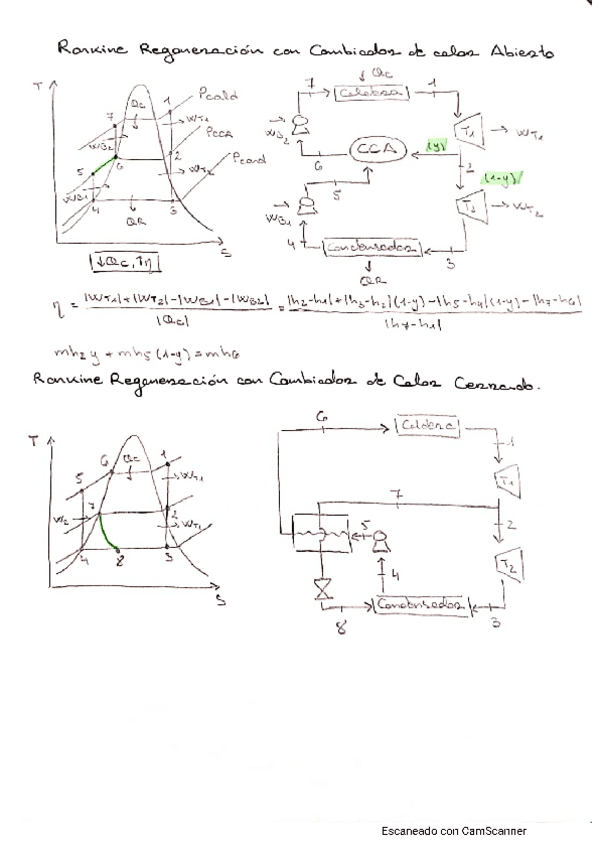 Rankine Regeneración con Cambiador de calor Abierto
T
7
Qc
1
Pcald
WT1
PCCA
WB2
6
2
Pcond
5
WT2
WB1
4
3
QR
S
↓Qc, ↑η
7
↓Qc
Caldera
1
WB2
T1
WT1
CCA
(y)
6
2
(1-y)
5
T2
WT2
WB1
4
Condensador
3
QR
η = |WT1|+|WT2|-|WB1|-|WB2| / |Qc| = |h2-h1|+|h3-h2|(1-y)-|h5-h4|(1-y)-|h7-h6| / |h7-h1|
mh2y + mh5(1-y) = mh6
Rankine Regeneración con Cambiador de Calor Cerrado.
T
6
Qc
1
5
WT1
7
2
WT1
4
8
3
S
6
Caldera
1
T1
7
5
2
4
T2
Condensador
8
3
Escaneado con CamScanner